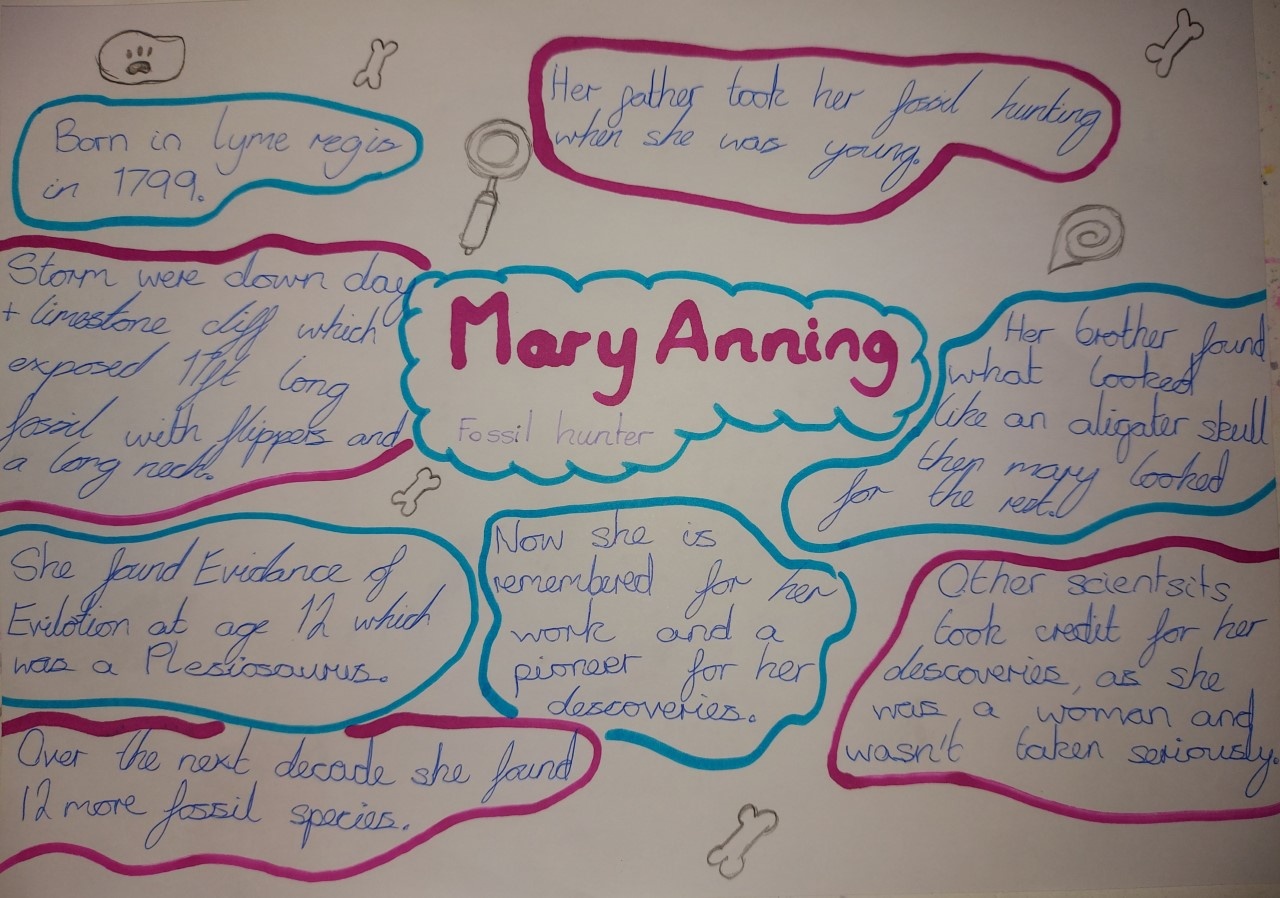 Born in Lyme regis
in 1799.
Her father took her fossil hunting
when she was young.
Storm were down day
+ limestone cliff which
exposed 17ft long
fossil with flippers and
a long neck.
Mary Anning
Fossil hunter
Her brother found
what looked
like an aligater skull
then mary looked
for the rest.
She found Evidance of
Evilotion at age 12 which
was a Plesiosaurus.
Now she is
remembered for her
work and a
pioneer for her
descoveries.
Other scientsits
took credit for her
descoveries, as she
was a woman and
wasn't taken seriously.
Over the next decade she found
12 more fossil species.